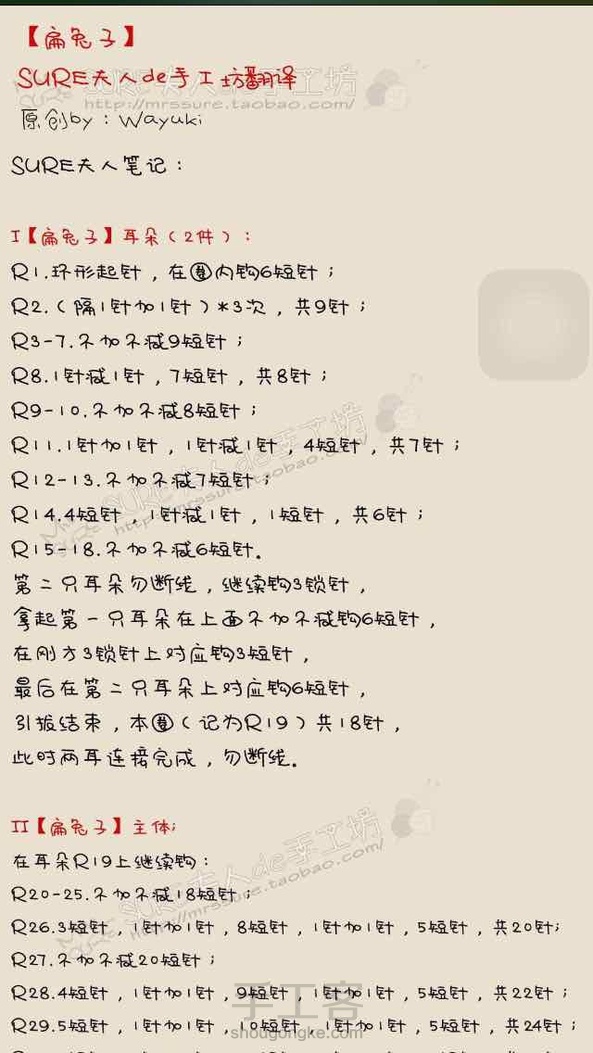 【扁兔子】
SURE夫人de手工坊翻译
http://mrssure.taobao.com/
原创by：Wayuki
SURE夫人笔记：
I【扁兔子】耳朵（2件）：
R1.环形起针，在圈内钩6短针；
R2.（隔1针加1针）*3次，共9针；
R3-7.不加不减9短针；
R8.1针减1针，7短针，共8针；
R9-10.不加不减8短针；
R11.1针加1针，1针减1针，4短针，共7针；
R12-13.不加不减7短针；
R14.4短针，1针减1针，1短针，共6针；
R15-18.不加不减6短针。
第二只耳朵勿断线，继续钩3锁针，
拿起第一只耳朵在上面不加不减钩6短针，
在刚才3锁针上对应钩3短针，
最后在第二只耳朵上对应钩6短针，
引拔结束，本圈（记为R19）共18针，
此时两耳连接完成，勿断线。
II【扁兔子】主体;
在耳朵R19上继续钩：
R20-25.不加不减18短针；
R26.3短针，1针加1针，8短针，1针加1针，5短针，共20针;
R27.不加不减20短针；
R28.4短针，1针加1针，9短针，1针加1针，5短针，共22针；
R29.5短针，1针加1针，10短针，1针加1针，5短针，共24针；
手工客
shougongke.com